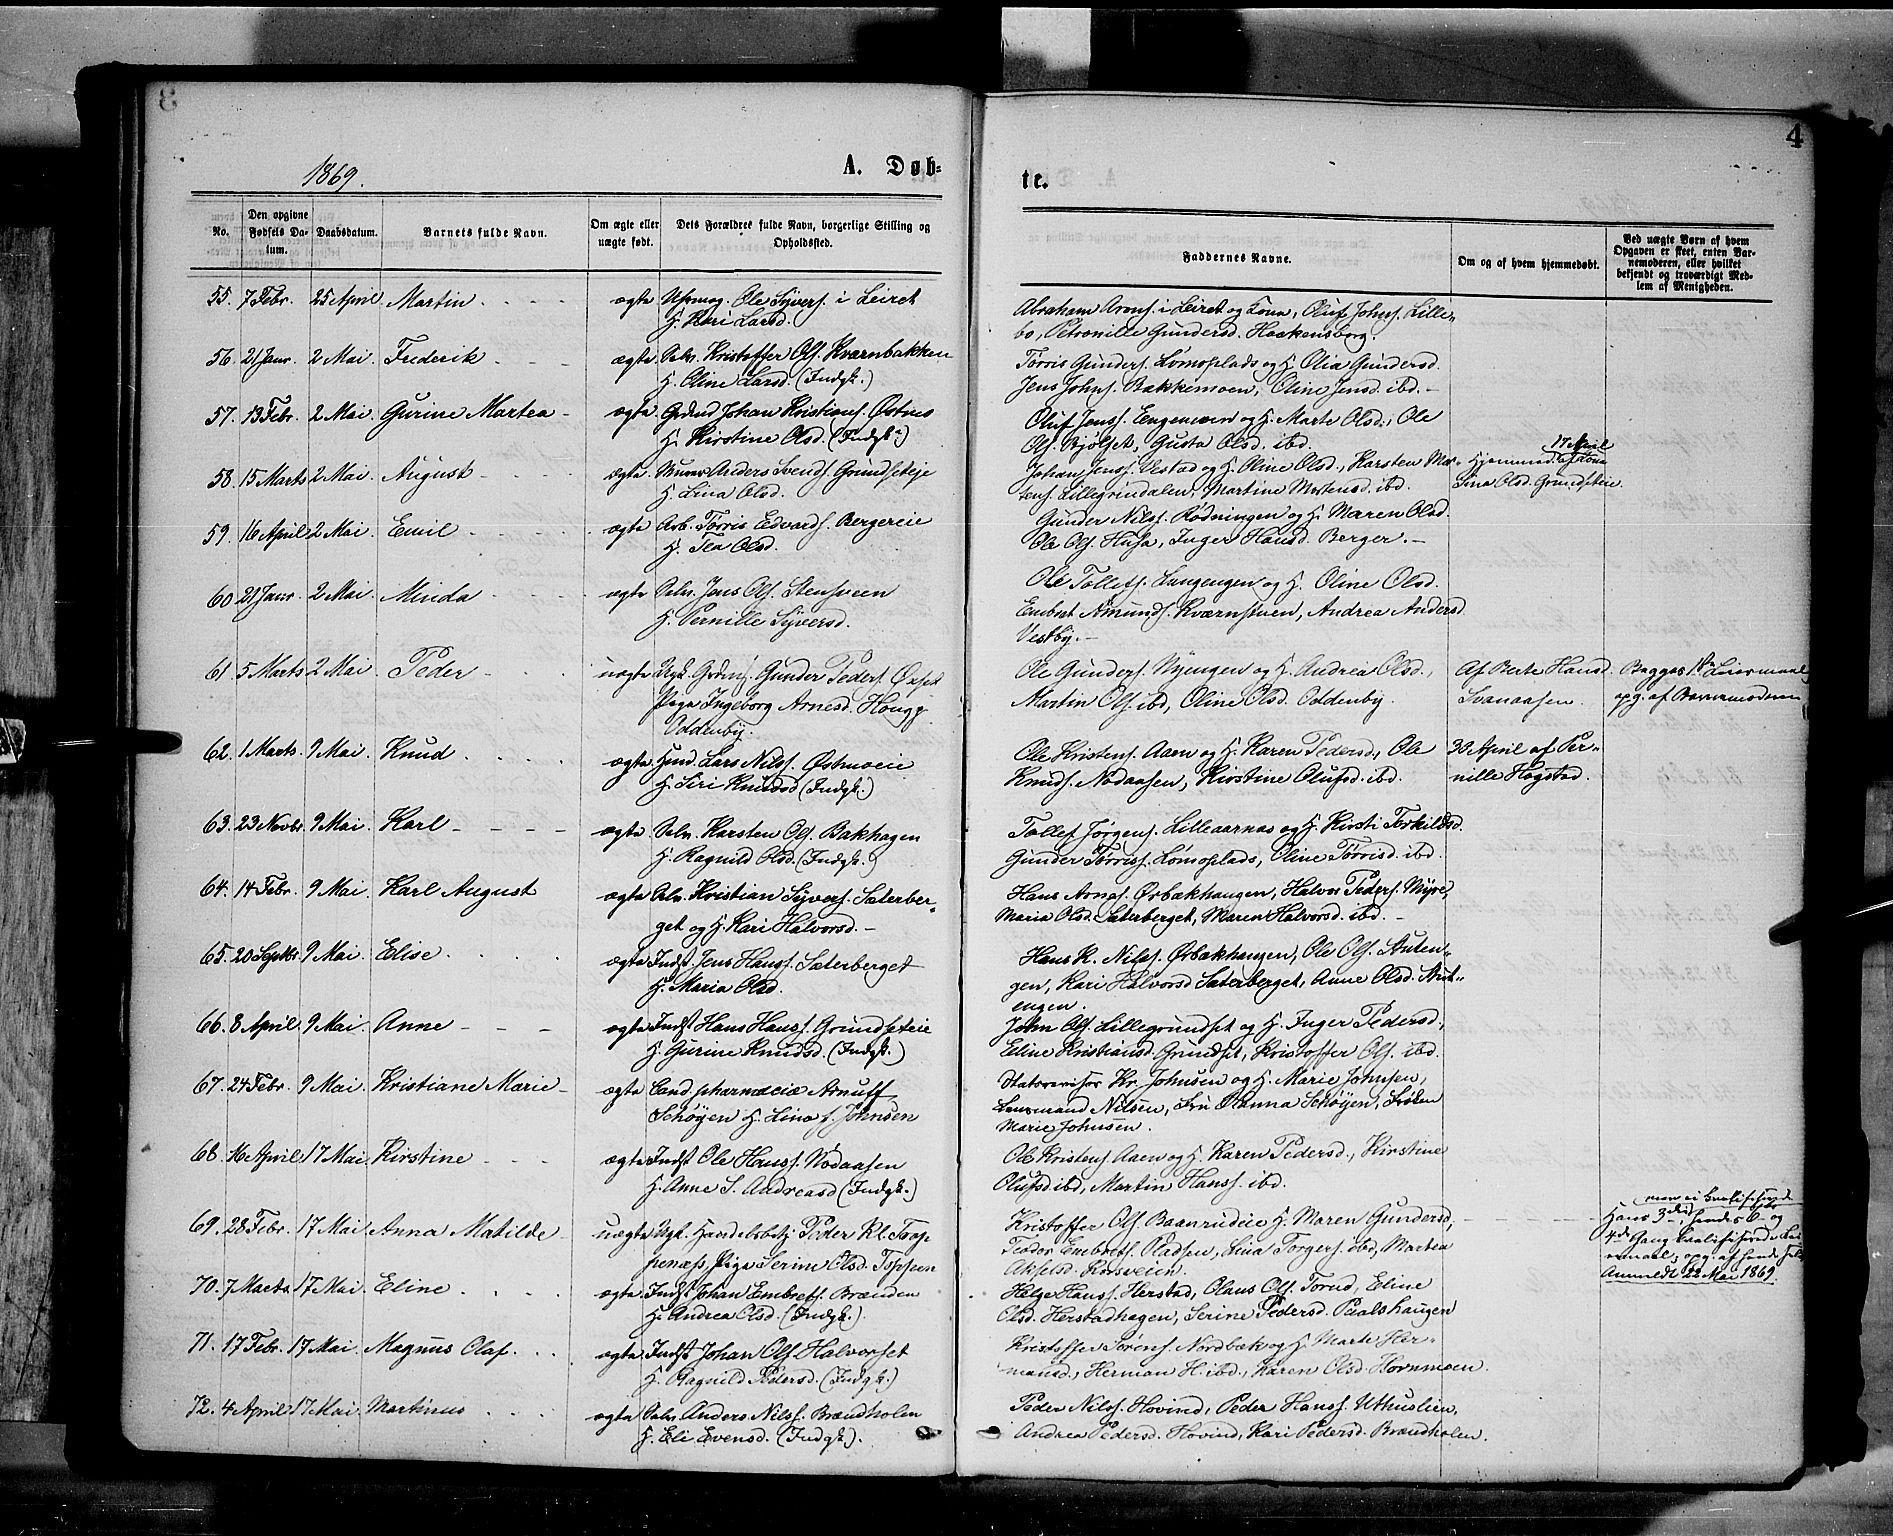 4
1869.
A. Døb-
te.
No.
Den opgivne Fødsels Datum.
Daabsdatum.
Barnets fulde Navn.
Om ægte eller uægte født.
Dets Forældres fulde Navn, borgerlige Stilling og Opholdssted.
Faddernes Navne.
Om og af hvem hjemmedøbt.
Ved uægte Børn af hvem Opgaven er skeet, enten Barnemoderen, eller hvilket bekjendt og troværdigt Medlem af Menigheden.
55. 7 Febr. 25 April Martin ægte Ole Syvers. i Leiret
H. Kari Larsd.
Abraham Arons. i Leiret og Kona, Oluf Johns. Lille-
bo, Petronille Gundersd. Haakensborg.
56. 21 Janr. 2 Mai Frederik ægte Selv. Kristoffer Ols. Kværnbakken
H. Oline Larsd. (Indgk.)
Tørris Gunders. Lomoplads og H. Olia Gundersd.
Jens Johns. Bakkemoen, Oline Jensd. ibd.
57. 13 Febr. 2 Mai Gurine Martea ægte Grdmd Johan Kristians. Østmo
H. Kirstine Olsd. (Indgk.)
Oluf Jenss. Engemoen og H. Marte Olsd., Ole
Ols. Bjølset, Gusta Olsd. ibd.
58. 15 Marts 2 Mai August ægte Murer Anders Svends. Grundseteje
H. Lina Olsd.
Johan Jenss. Vestad og H. Oline Olsd., Karsten Mor-
tens. Lillegrindalen, Martine Mortensd. ibd.
17 April
Hjemmed. af Kona
Lina Olsd. Grundseteie.
59. 16 April 2 Mai Emil ægte Arb. Tørris Edvards. Bergereie
H. Tea Olsd.
Gunder Nilss. Rødningen og H. Maren Olsd.
Ole Ols. Husa, Inger Hansd. Berger.
60 21 Janr 2 Mai Minda ægte Selv. Jens Ols. Stensveen
H. Pernille Syversd.
Ole Tollefs. Langengen og H. Oline Olsd.
Embret Amunds. Kværnstuen, Andrea Andersd
Vestby.
61 5 Marts 2 Mai Peder uægte Ugk. Grdms. Gunder Peders. Øxset
Pige Ingeborg Arnesd. Hougg.
Oddenby.
Ole Gunders. Nyengen og H. Andrea Olsd.,
Martin Ols. ibd, Oline Olsd. Oddenby.
Af Berte Hansd.
Svenaasen.
Begges 1ste Leiermaal,
opg. af Barnemoderen
62. 1 Marts 9 Mai Knud ægte Husmd. Lars Nilss. Østmoeie
H. Siri Knudsd (Indgk.)
Ole Kristens. Aaen og H. Karen Pedersd., Ole
Knuds. Nodaasen, Kirstine Olufsd. ibd.
30 April af Per-
nille Hogstad.
63. 23 Novbr. 9 Mai Karl ægte Selv. Karsten Ols. Bakhagen
H. Ragnild Olsd. (Indgk.)
Tollef Jørgens. Lilleaarnas og H. Kirsti Torkildsd.
Gunder Tørriss. Lomoplads, Oline Tørrisd. ibd.
64. 14 Febr. 9 Mai Karl August ægte Selv. Kristian Syvers. Sæterber-
get og H. Kari Halvorsd.
Hans Arnes. Ørbækhaugen, Halvor Peders. Myre,
Maria Olsd. Sæterberget, Maren Halvorsd. ibd.
65. 20 Septbr. 9 Mai Elise ægte Indst Jens Hanss. Sæterberget
H. Maria Olsd.
Hans K. Nilss. Ørbækhaugen, Ole Ols. Stuten-
gen, Kari Halvorsd Sæterberget, Anne Olsd. Stut-
engen.
66. 8 April 9 Mai Anne ægte Indst Hans Hanss. Grundseteie
H. Gurine Knudsd. (Indgk.)
John Ols. Lillegrundset og H. Inger Pedersd.,
Eline Kristiansd. Grundset, Kristoffer Ols. ibd.
67. 24 Febr. 9 Mai Kristiane Marie ægte Cand pharmaciæ Arnuff
Schøyen H. Lina f. Johnsen
Statsrevisor Kr. Johnsen og H. Marie Johnsen,
Lensmand Nilsen, Fru Hanna Schøyen, Frøken
Marie Johnsen.
68. 16 April 17 Mai Kirstine ægte Indst Ole Hanss. Nodaasen
H. Anne S. Andreasd (Indgk.)
Ole Kristens. Aaen og H. Karen Pedersd., Kirstine
Olufsd ibd, Martin Hanss. ibd.
69. 28 Febr. 17 Mai Anna Matilde uægte Ugk. Handelsbetj. Peder Kl. Trop-
penæss, Pige Serine Olsd. Toppeen
Kristoffer Ols. Baanrudeie H. Maren Gundersd,
Teodor Embrets. Pladsen, Lina Torgers. ibd, Martea
Akselsd. Rørsveien.
Hans 3die, hendes 6- og
opg. af hende selv
Anmeldt 22 Mai 1869.
70. 7 Marts 17 Mai Eline ægte Indst Johan Embrets. Brænden
H. Andrea Olsd. (Indgk.)
Helge Hanss. Herstad, Olaus Ols. Torud, Eline
Olsd. Herstadhagen, Serine Pedersd. Paalshaugen
71. 17 Febr. 17 Mai Magnus Olaf ægte Indst Johan Ols. Halvorset
H. Ragnild Pedersd. (Indgk.)
Kristoffer Sørens. Nordbæk og H. Marte Her-
mansd., Herman H. ibd., Karen Olsd. Hornmoen.
72. 4 April 17 Mai. Martinus ægte Selv. Anders Nilss. Brændholen
H. Eli Evensd. (Indgk.)
Peder Nilss. Hovind, Peder Hanss. Uthuslien,
Andrea Pedersd. Hovind, Kari Pedersd. Brændholen.